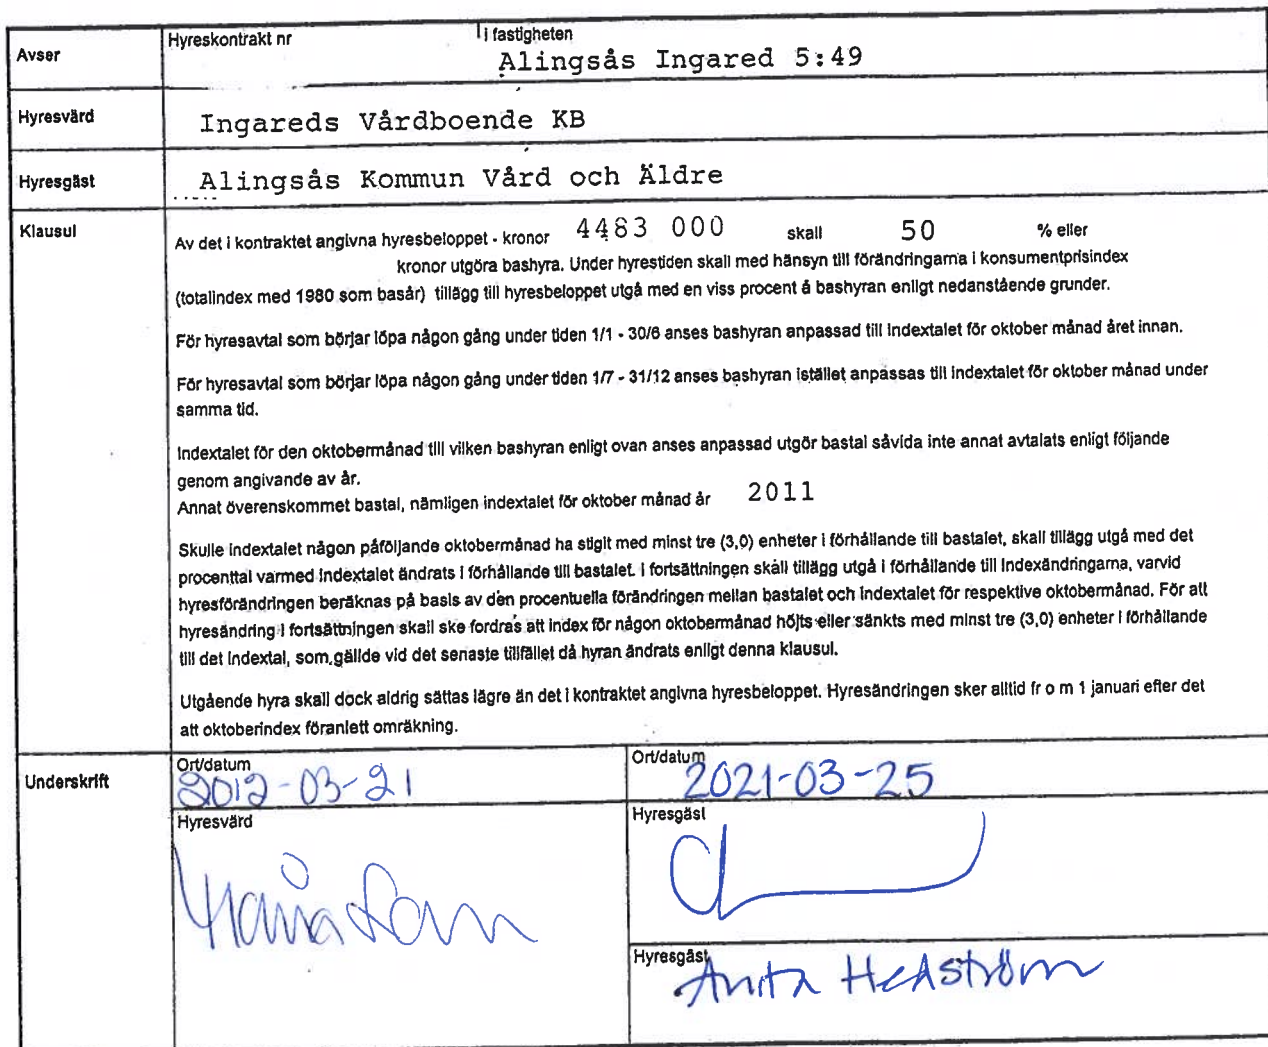 Avser
Hyreskontrakt nr
i fastigheten
Alingsås Ingared 5:49
Hyresvärd
Ingareds Vårdboende KB
Hyresgäst
Alingsås Kommun Vård och Äldre
Klausul
Av det i kontraktet angivna hyresbeloppet - kronor 4483 000 skall 50 % eller
kronor utgöra bashyra. Under hyrestiden skall med hänsyn till förändringarna i konsumentprisindex
(totalindex med 1980 som basår) tillägg till hyresbeloppet utgå med en viss procent å bashyran enligt nedanstående grunder.
För hyresavtal som börjar löpa någon gång under tiden 1/1 - 30/6 anses bashyran anpassad till indextalet för oktober månad året innan.
För hyresavtal som börjar löpa någon gång under tiden 1/7 - 31/12 anses bashyran istället anpassas till indextalet för oktober månad under
samma tid.
Indextalet för den oktobermånad till vilken bashyran enligt ovan anses anpassad utgör bastal såvida inte annat avtalats enligt följande
genom angivande av år.
Annat överenskommet bastal, nämligen indextalet för oktober månad år 2011
Skulle indextalet någon påföljande oktobermånad ha stigit med minst tre (3,0) enheter i förhållande till bastalet, skall tillägg utgå med det
procenttal varmed indextalet ändrats i förhållande till bastalet. I fortsättningen skall tillägg utgå i förhållande till indexändringarna, varvid
hyresförändringen beräknas på basis av den procentuella förändringen mellan bastalet och indextalet för respektive oktobermånad. För att
hyresändring i fortsättningen skall ske fordras att index för någon oktobermånad höjts eller sänkts med minst tre (3,0) enheter i förhållande
till det indextal, som gällde vid det senaste tillfället då hyran ändrats enligt denna klausul.
Utgående hyra skall dock aldrig sättas lägre än det i kontraktet angivna hyresbeloppet. Hyresändringen sker alltid fr o m 1 januari efter det
att oktoberindex föranlett omräkning.
Underskrift
Ort/datum
2012-03-21
Ort/datum
2021-03-25
Hyresvärd
Hyresgäst
Hyresgäst
Anita Hedström